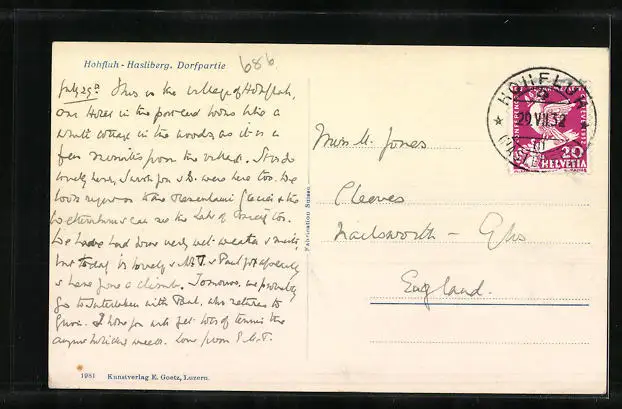 Hohfluh - Hasliberg. Dorfpartie
686
July 29th This is the village of Hohfluh,
our Hotel in the postcard looks like a
white cottage in the woods, as it is a
few minutes from the village. It is
lovely here, I wish you were here too. We
look right on to the Rosenlaui Glacier & the
& can see the Lake of too.
We have had some very wet weather &
but today is lovely & & Paul got up early
& have gone a climb. Tomorrow, we probably
go to Interlaken with Paul, who returns to
. I hope you will get lots of tennis the
August holiday week. Love from
Miss M. Jones
Cleeves
Nailsworth - Glos
England.
HOHFLUH
29.VII.32
20
HELVETIA
Fabrication Suisse
1981 Kunstverlag E. Goetz, Luzern.